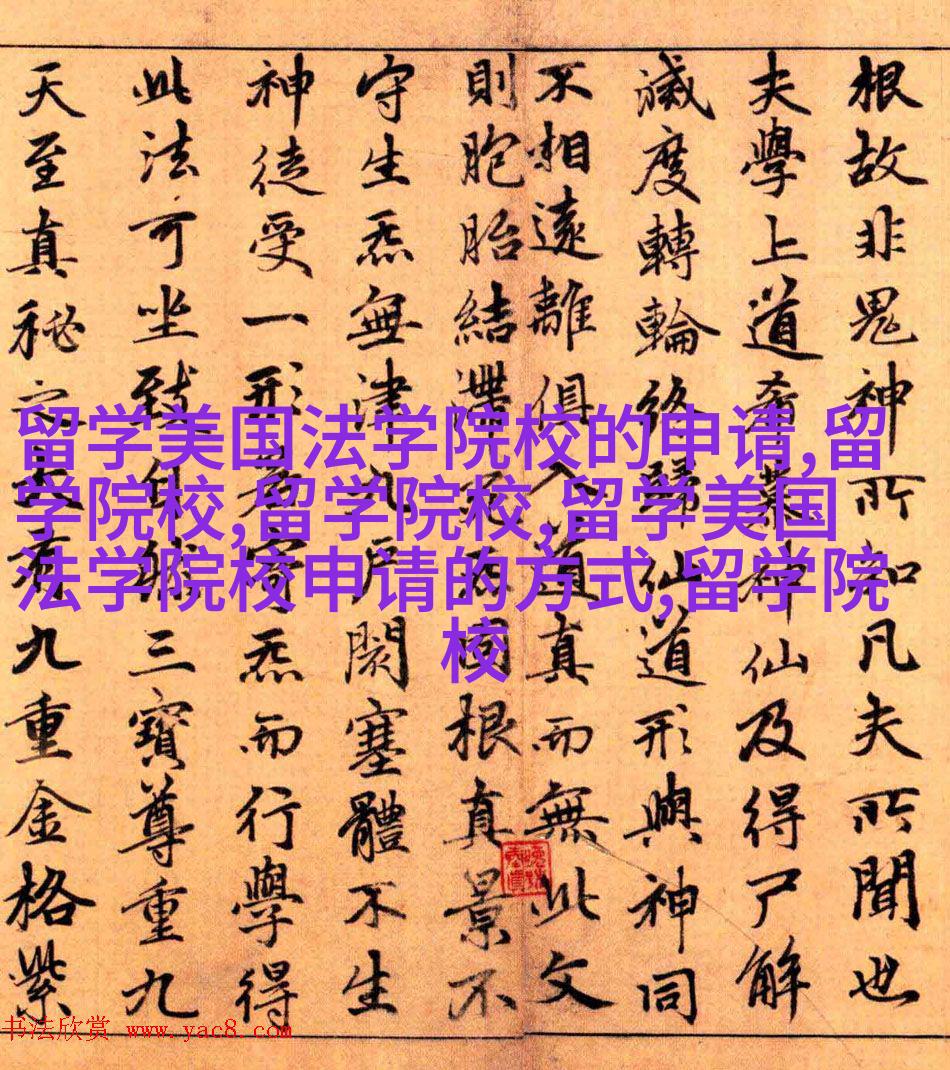 根故非鬼神所知凡夫所聞也
夫學上道希慕神仙及得尸解
滅度轉輪終歸仙道形與神同
不相遠離俱入道真而無此文
則胞胎結滯死炁固根真景不
守生炁無津九戶閡塞體不生
神徒受一形若寄炁而行學得
此法可坐致自然三寶尊重九
天至真秘之大有九重金格紫
留学美国法学院校的申请,留
学院校,留学院校,留学美国
法学院校申请的方式,留学院
校
书法欣赏 www.yac8.com